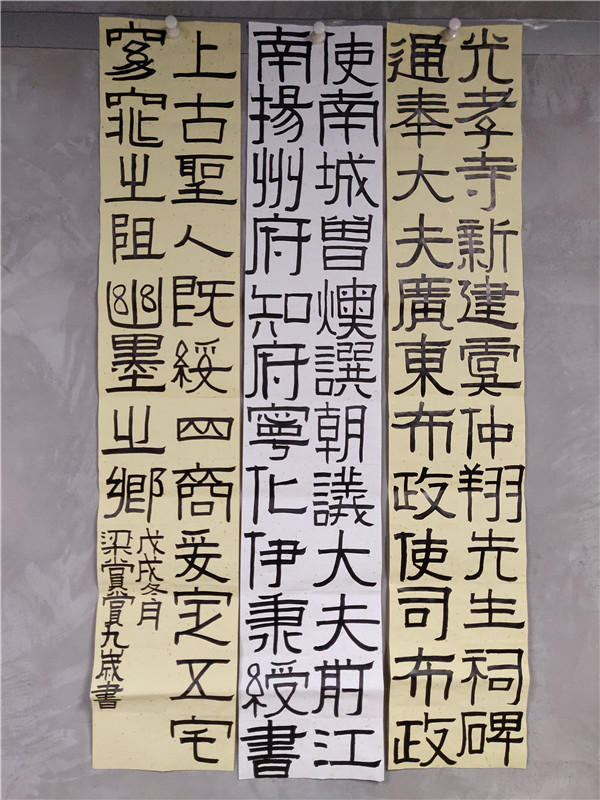 光孝寺新建虞仲翔先生祠碑
通奉大夫廣東布政使司布政
使南城曾燠譔朝議大夫前江
南揚州府知府寧化伊秉綬書
上古聖人既綏四裔爰定五宅
窮荒之阻幽墨之鄉
戊戌冬月
梁賞賞九歲書